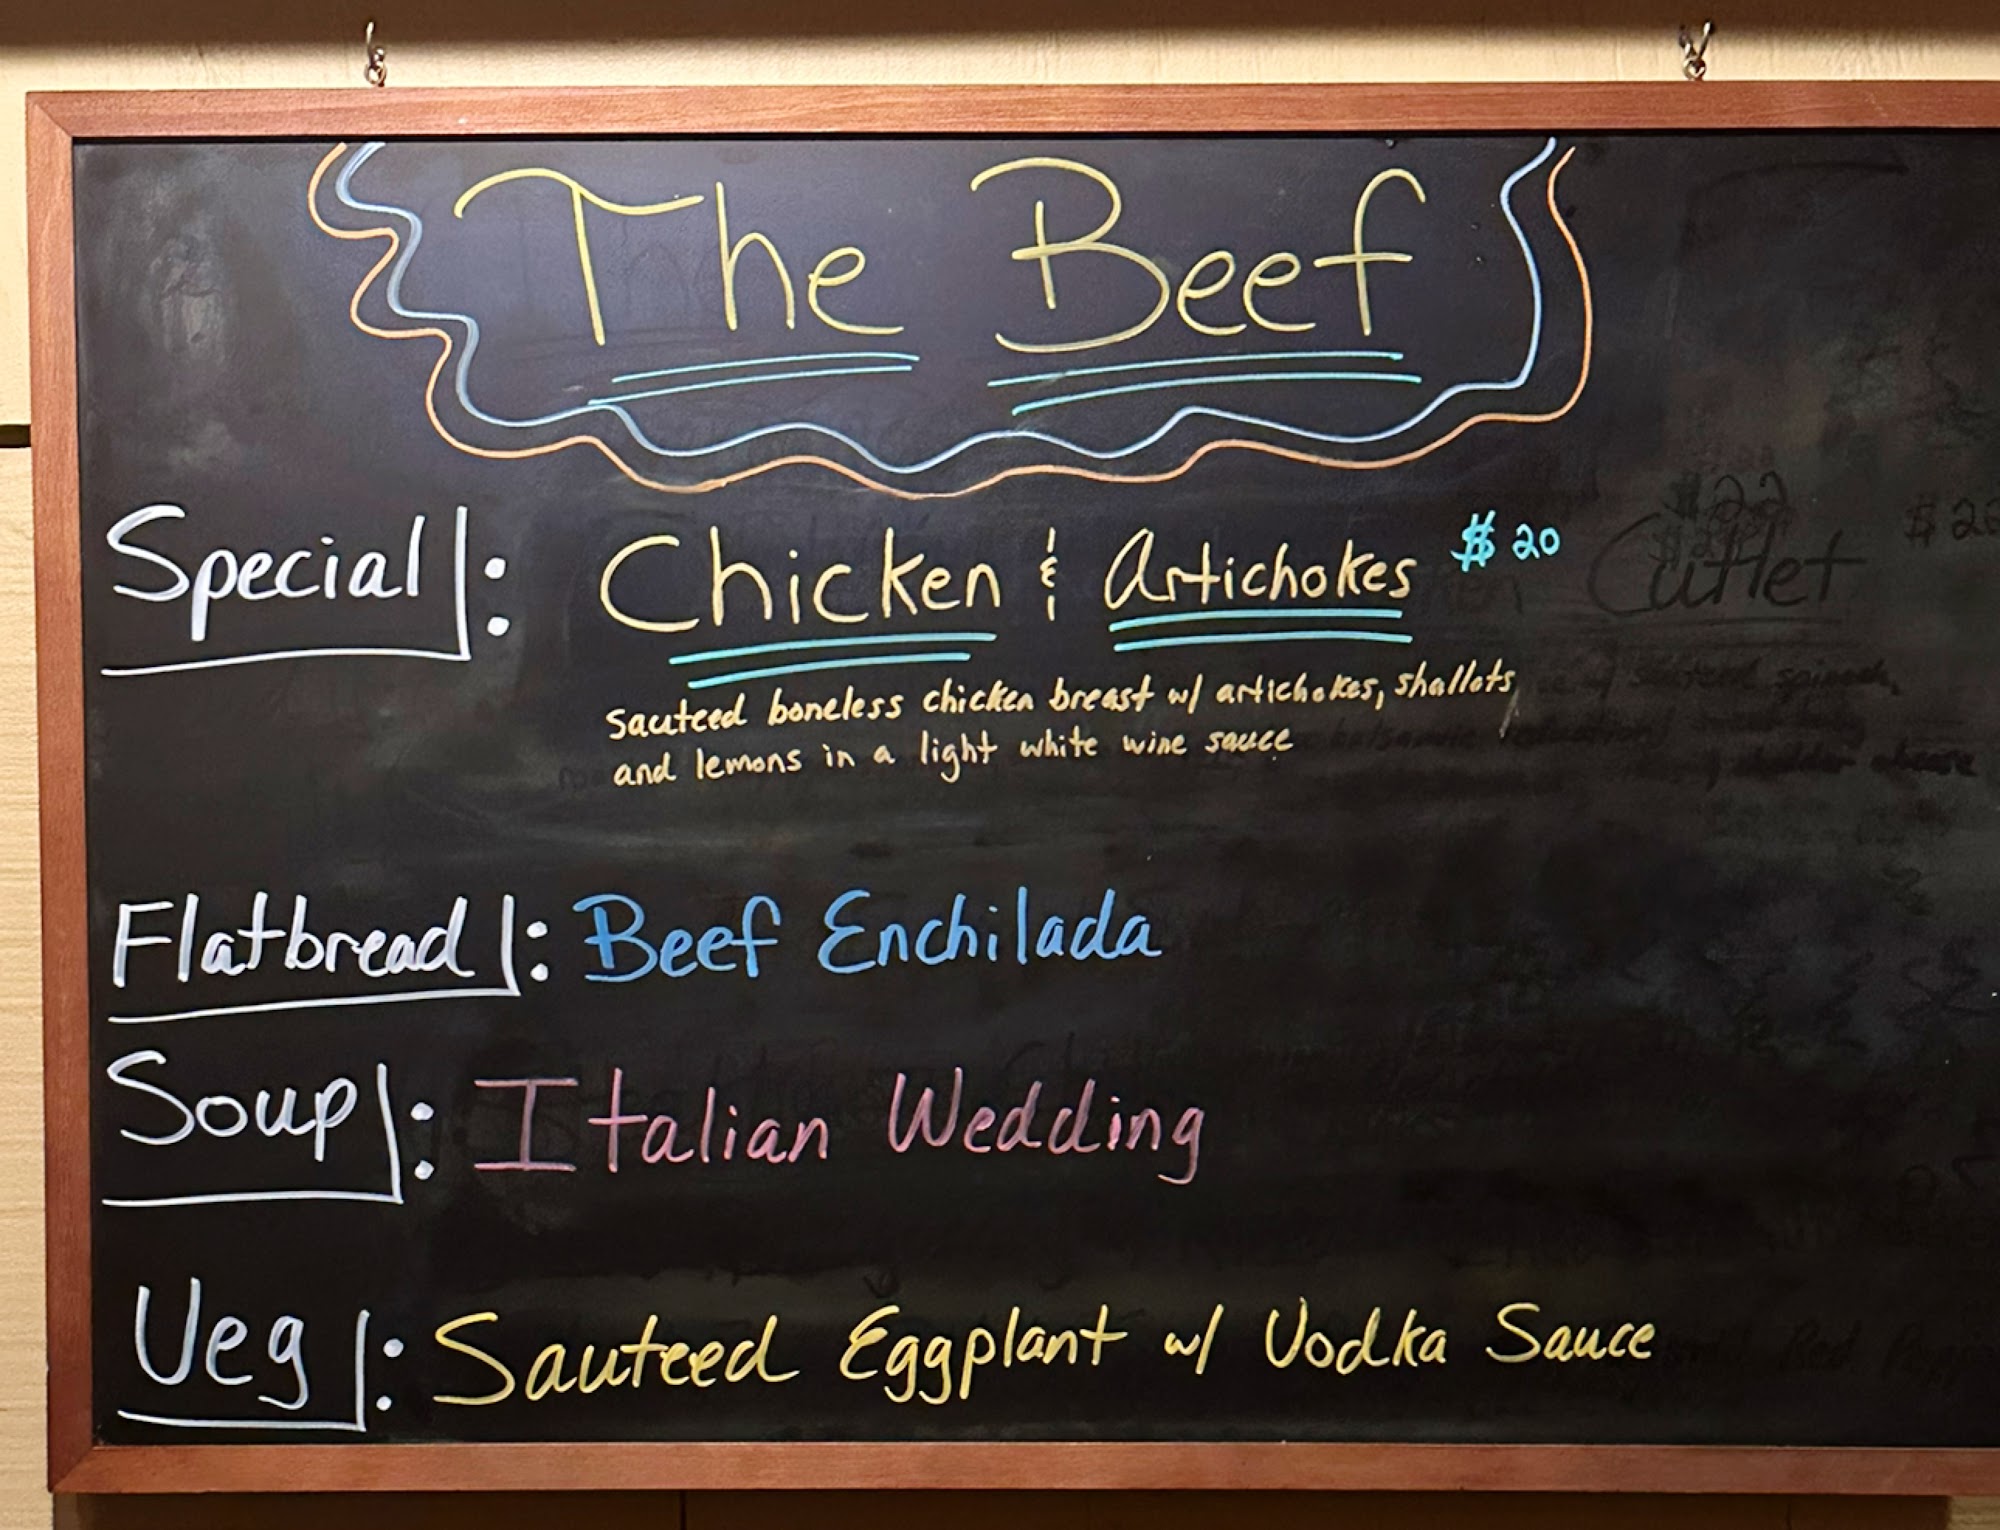 The Beef
Special: Chicken & Artichokes $20
Cutlet
sauteed boneless chicken breast w/ artichokes, shallots,
and lemons in a light white wine sauce
Flatbread: Beef Enchilada
Soup: Italian Wedding
Veg: Sauteed Eggplant w/ Vodka Sauce